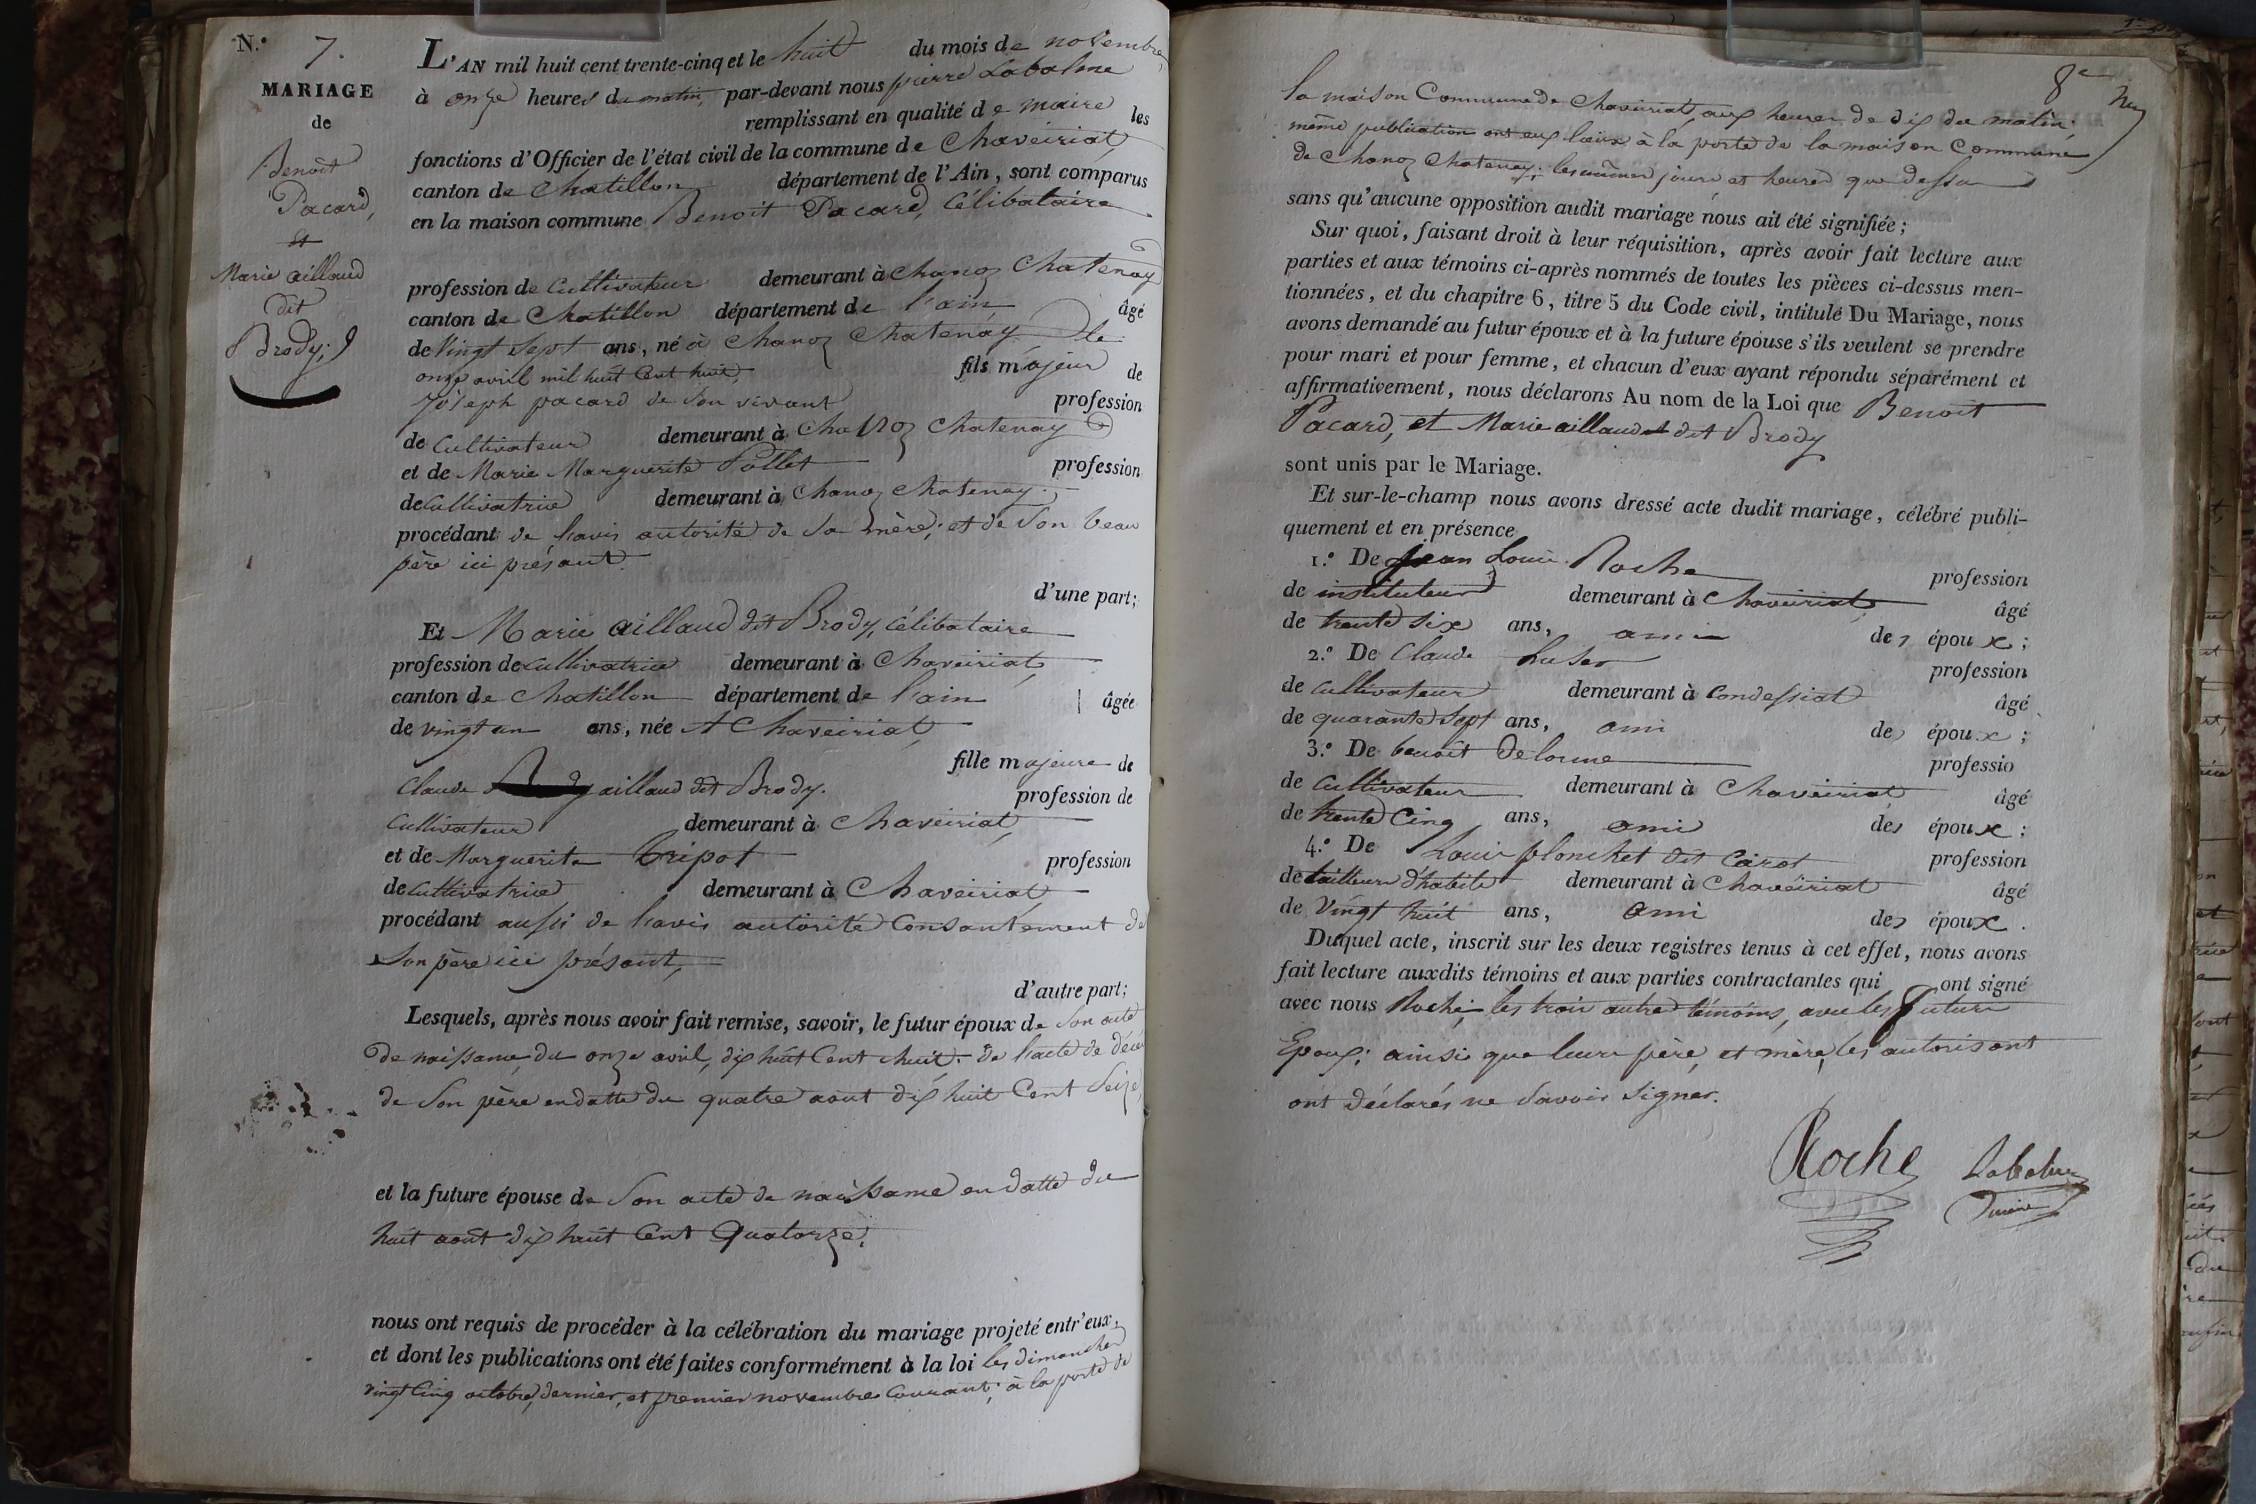 N.° 7.
MARIAGE
de
Benoit
Pacard,
et
Marie aillaud
dit
Brody;
L'AN mil huit cent trente-cinq et le huit du mois de novembre
à onze heures du matin, par-devant nous pierre Labalme
remplissant en qualité de maire les
fonctions d'Officier de l'état civil de la commune de Chaveiriat
canton de Chatillon département de l'Ain, sont comparus
en la maison commune Benoit Pacard, Célibataire
profession de Cultivateur demeurant à Chanoz Chatenay
canton de Chatillon département de l'ain âgé
de Vingt Sept ans, né à Chanoz Chatenay le
onze avril mil huit Cent huit, fils majeur de
joseph pacard de Son vivant profession
de Cultivateur demeurant à Chanoz Chatenay
et de Marie Marguerite Pollet profession
de Cultivatrice demeurant à Chanoz Chatenay;
procédant de l'avis autorité de Sa mère; et de Son beau
père ici présant.
d'une part;
Et Marie aillaud dit Brody, Célibataire
profession de cultivatrice demeurant à Chaveiriat,
canton de Chatillon département de l'ain âgée
de vingt un ans, née A Chaveiriat,
fille majeure de
Claude aillaud dit Brody. profession de
Cultivateur demeurant à Chaveiriat,
et de Marguerite Tripot profession
de Cultivatrice demeurant à Chaveiriat,
procédant aussi de l'avis autorité Consantement de
Son père ici présant,
d'autre part;
Lesquels, après nous avoir fait remise, savoir, le futur époux de Son acte
de naissance, du onze avril, dix huit Cent huit. de l'acte de décè
de Son père en datte du quatre aout dix huit Cent Seize,
et la future épouse de Son acte de naissance en datte du
huit août dix huit Cent Quatorze.
nous ont requis de procéder à la célébration du mariage projeté entr'eux,
et dont les publications ont été faites conformément à la loi les dimanches
vingt Cinq octobre, dernier, et premier novembre Courant; à la porte de
8e
la maison Commune de Chaveiriat, aux heures de dix du matin;
même publication ont eux lieux à la porte de la maison Commune
de Chanoz Chatenay; les mêmes jours et heures que dessus
sans qu'aucune opposition audit mariage nous ait été signifiée;
Sur quoi, faisant droit à leur réquisition, après avoir fait lecture aux
parties et aux témoins ci-après nommés de toutes les pièces ci-dessus men-
tionnées, et du chapitre 6, titre 5 du Code civil, intitulé Du Mariage, nous
avons demandé au futur époux et à la future épouse s'ils veulent se prendre
pour mari et pour femme, et chacun d'eux ayant répondu séparément et
affirmativement, nous déclarons Au nom de la Loi que Benoit
Pacard, et Marie aillaud dit Brody
sont unis par le Mariage.
Et sur-le-champ nous avons dressé acte dudit mariage, célébré publi-
quement et en présence
1.° De Jean Louis Roche profession
de instituteur demeurant à Chaveiriat, âgé
de trente six ans, ami des époux;
2.° De Claude profession
de Cultivateur demeurant à Condessiat âgé
de quarante sept ans, ami des époux;
3.° De benoit Delorme professio
de Cultivateur demeurant à Chaveiriat âgé
de trente Cinq ans, ami des époux;
4.° De Louis planchet dit Carot profession
de tailleur d'habits demeurant à Chaveiriat âgé
de Vingt huit ans, ami des époux.
Duquel acte, inscrit sur les deux registres tenus à cet effet, nous avons
fait lecture auxdits témoins et aux parties contractantes qui ont signé
avec nous Roche, les trois autres témoins, avec les future
Epoux; ainsi que leurs père, et mère, les autorisant
ont déclarés ne Savoir Signer.
Roche Labalme
maire